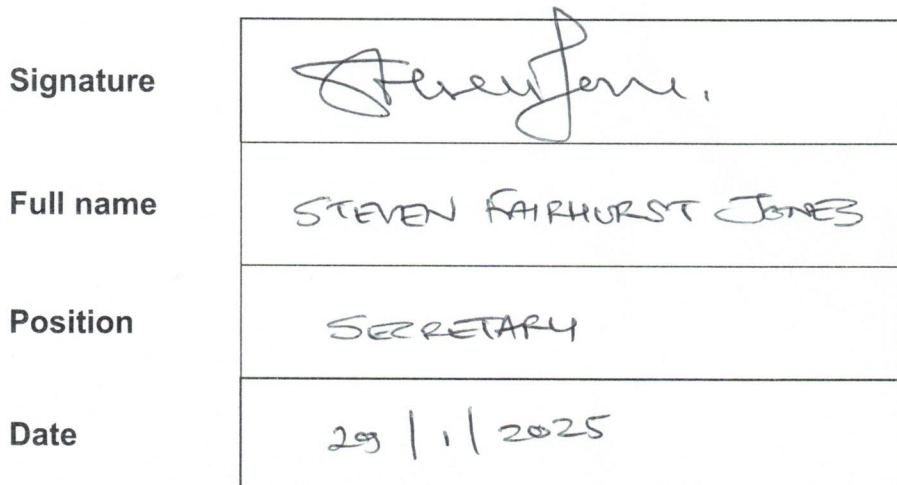 Signature
Full name STEVEN FAIRHURST JONES
Position SECRETARY
Date 29/1/2025